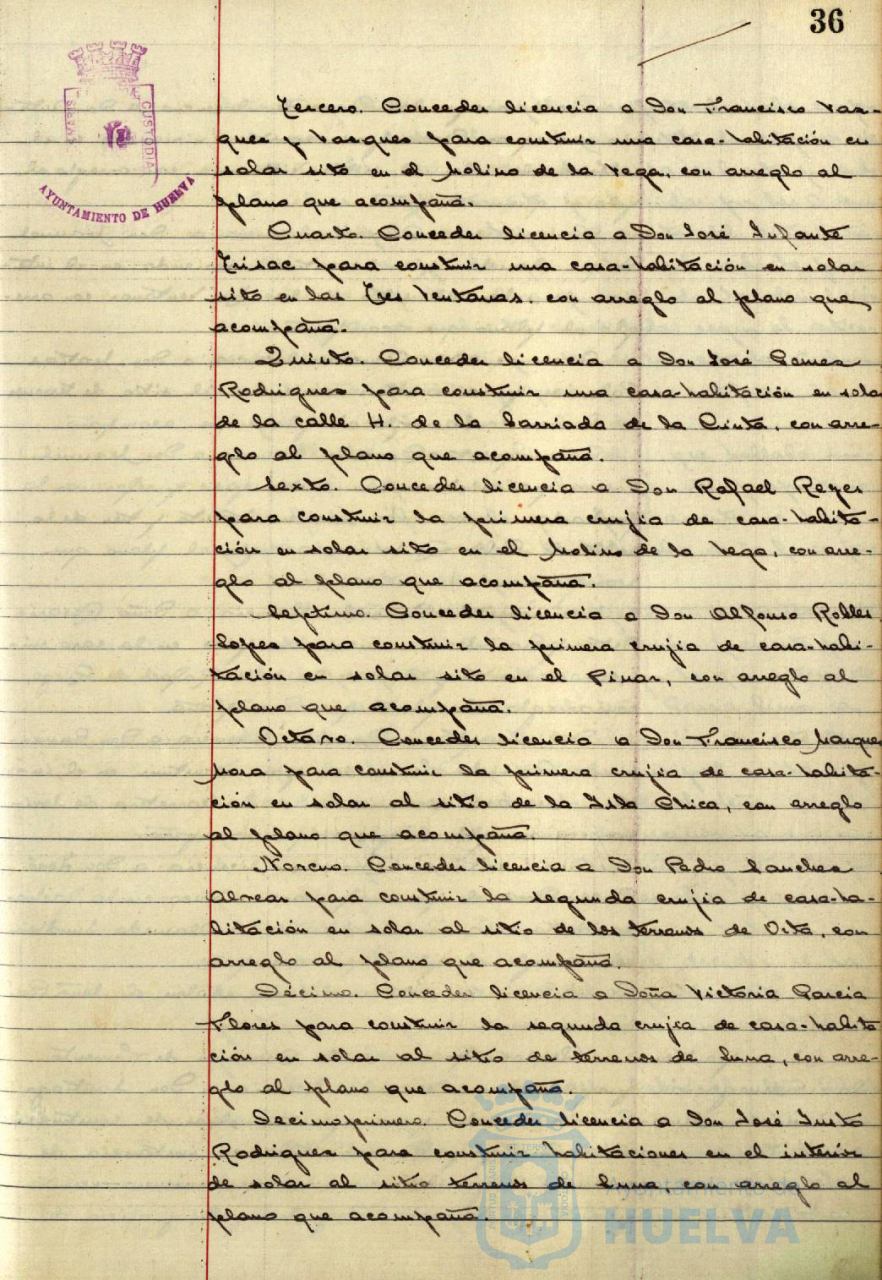 36
SIGNAS
CUSTODIA
AYUNTAMIENTO DE HUELVA
Tercero. Conceder licencia a Don Francisco Vaz-
quez y Vazquez para construir una casa-habitación en
solar sito en el Molino de la Vega, con arreglo al
plano que acompaña.
Cuarto. Conceder licencia a Don José Infante
Trisac para construir una casa-habitación en solar
sito en las Tres Ventanas, con arreglo al plano que
acompaña.
Quinto. Conceder licencia a Don José Gomez
Rodriguez para construir una casa-habitación en solar
de la calle H. de la barriada de la Cinta, con arre-
glo al plano que acompaña.
Sexto. Conceder licencia a Don Rafael Reyes
para construir la primera crujia de casa-habita-
ción en solar sito en el Molino de la Vega, con arre-
glo al plano que acompaña.
Septimo. Conceder licencia a Don Alfonso Robles
Lopez para construir la primera crujia de casa-habi-
tación en solar sito en el Pinar, con arreglo al
plano que acompaña.
Octavo. Conceder licencia a Don Francisco Marquez
Mora para construir la primera crujia de casa-habita-
ción en solar al sitio de la Isla Chica, con arreglo
al plano que acompaña.
Noveno. Conceder licencia a Don Pedro Sanchez
Alvear para construir la segunda crujia de casa-ha-
bitación en solar al sitio de los terrenos de Orta, con
arreglo al plano que acompaña.
Décimo. Conceder licencia a Doña Victoria Garcia
Flores para construir la segunda crujia de casa-habita
ción en solar al sitio de terrenos de Luna, con arre-
glo al plano que acompaña.
Decimoprimero. Conceder licencia a Don José Justo
Rodriguez para construir habitaciones en el interior
de solar al sitio terrenos de Luna, con arreglo al
plano que acompaña.
Ayuntamiento de
HUELVA